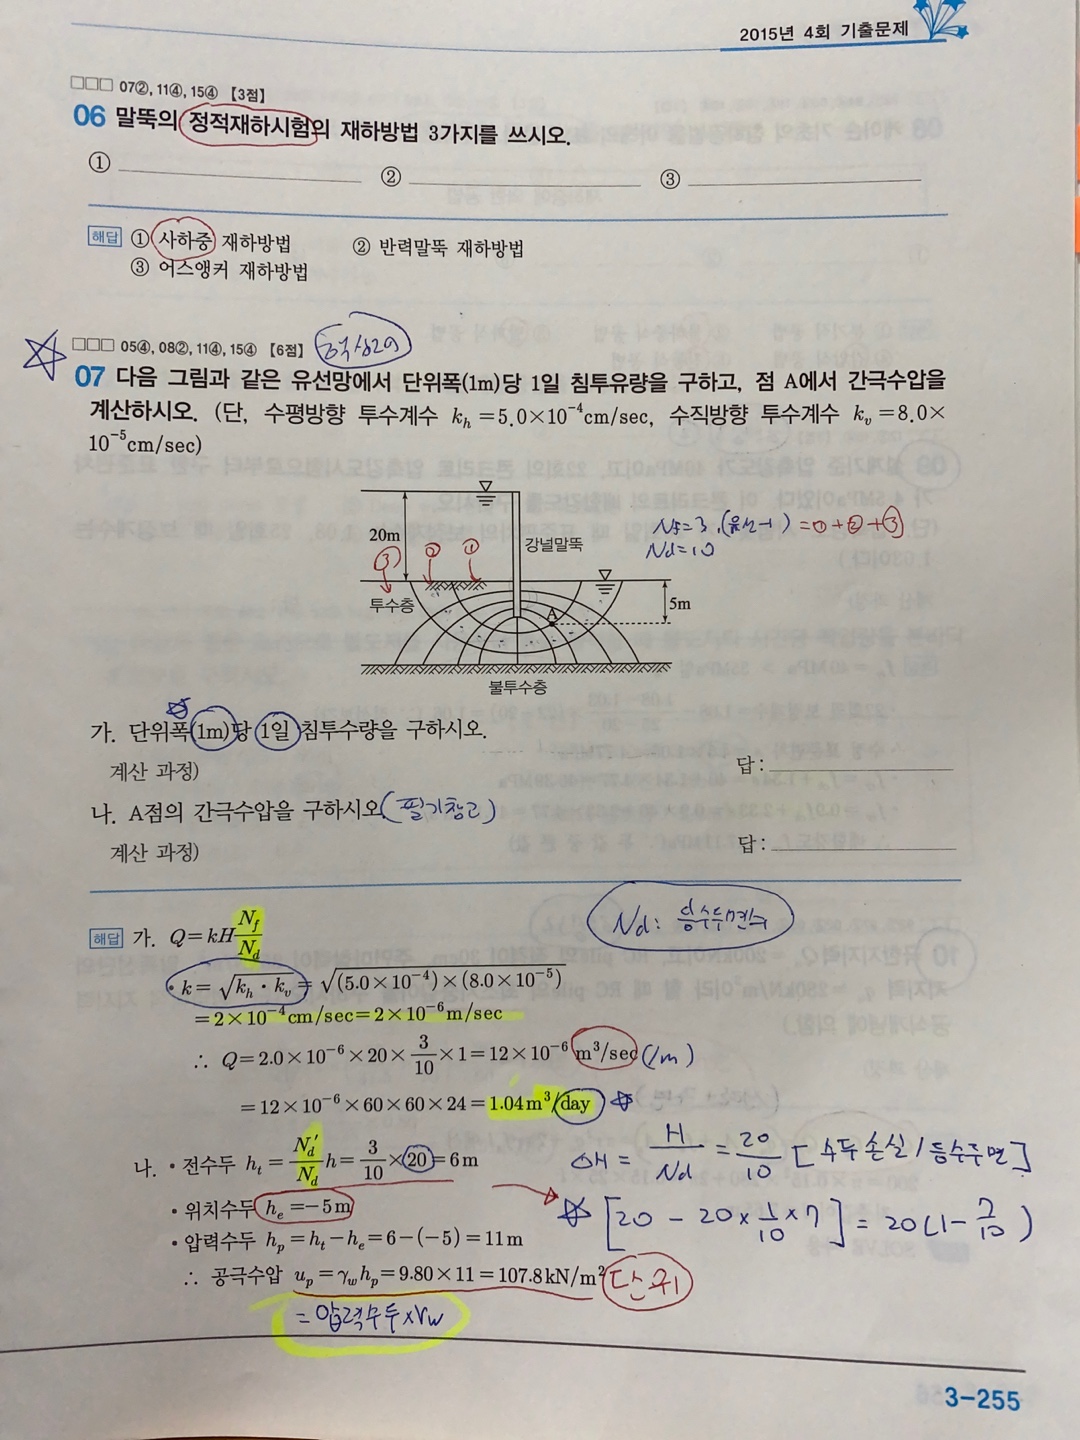 2015년 4회 기출문제
□□□ 07②, 11④, 15④ 【3점】
06 말뚝의 정적재하시험의 재하방법 3가지를 쓰시오.
① ② ③
해답 ① 사하중 재하방법 ② 반력말뚝 재하방법
③ 어스앵커 재하방법
□□□ 05④, 08②, 11④, 15④ 【6점】
07 다음 그림과 같은 유선망에서 단위폭(1m)당 1일 침투유량을 구하고, 점 A에서 간극수압을
계산하시오. (단, 수평방향 투수계수 kh =5.0×10⁻⁴cm/sec, 수직방향 투수계수 kv =8.0×
10⁻⁵cm/sec)
20m
강널말뚝
Nf=3, (유선-1) = ①+②+③
Nd=10
③ ② ①
투수층
A
5m
불투수층
가. 단위폭(1m)당 1일 침투수량을 구하시오.
계산 과정) 답:
나. A점의 간극수압을 구하시오. (필기참고)
계산 과정) 답:
Nd: 등수두면수
해답 가. Q=kH Nf/Nd
• k=√(kh·kv)=√((5.0×10⁻⁴)×(8.0×10⁻⁵))
=2×10⁻⁴cm/sec=2×10⁻⁶m/sec
∴ Q=2.0×10⁻⁶×20×3/10×1=12×10⁻⁶m³/sec (/m)
=12×10⁻⁶×60×60×24=1.04m³/day
나. • 전수두 ht=Nd'/Nd h=3/10×20=6m
ΔH = H/Nd = 20/10 [수두손실/등수두면]
• 위치수두 he=−5m
[20 - 20×1/10×7] = 20(1-7/10)
• 압력수두 hp=ht−he=6−(−5)=11m
∴ 공극수압 up=γw hp=9.80×11=107.8kN/m² 단위
=압력수두×γw
3-255